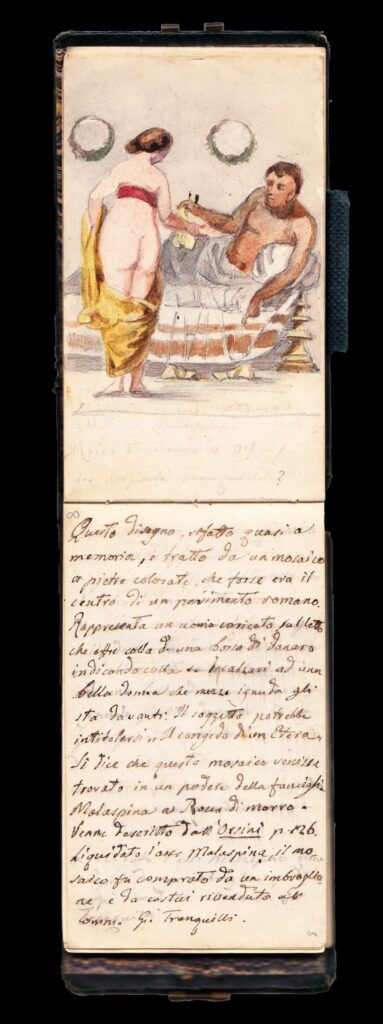 Questo disegno, rifatto quasi a
memoria, è tratto da un mosaico
a pietre colorate, che forse era il
centro di un pavimento romano.
Rappresenta un uomo coricato sul letto
che offre colla d una borsa di danaro
indicando colla s. i calzari ad una
bella donna che mezzo ignuda gli
sta davanti. Il soggetto potrebbe
intitolarsi: Il congedo di un Etera.
Si dice che questo mosaico venisse
trovato in un podere della famiglia
Malaspina a Rocca di morro.
Venne descritto dall'Orsini p. 126.
Liquidato l'asse Malaspina il mo
saico fu comprato da un imbroglio
ne e da costui rivenduto a
G. Tranquilli.